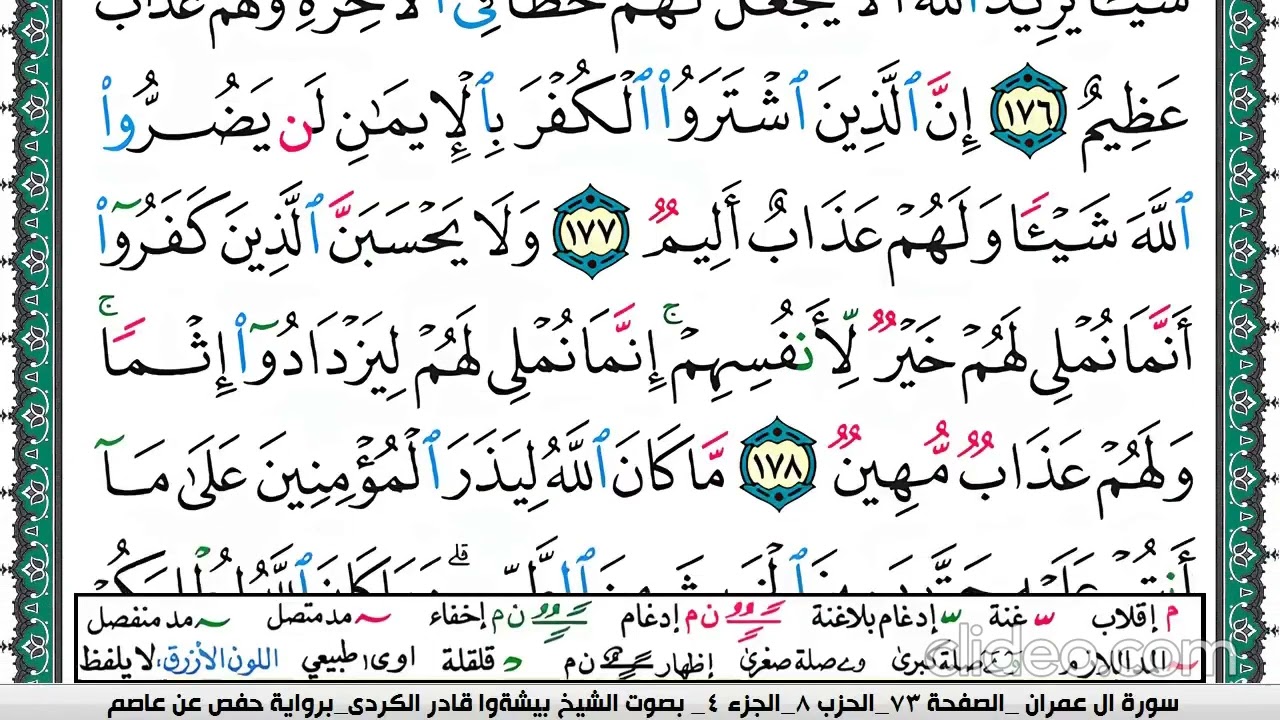 شَيْـًٔا يُرِيدُ ٱللَّهُ أَلَّا يَجْعَلَ لَهُمْ حَظًّا فِى ٱلْأَخِرَةِ وَلَهُمْ عَذَابٌ
عَظِيمٌ ١٧٦ إِنَّ ٱلَّذِينَ ٱشْتَرَوُا۟ ٱلْكُفْرَ بِٱلْإِيمَٰنِ لَن يَضُرُّوا۟
ٱللَّهَ شَيْـًٔا وَلَهُمْ عَذَابٌ أَلِيمٌ ١٧٧ وَلَا يَحْسَبَنَّ ٱلَّذِينَ كَفَرُوٓا۟
أَنَّمَا نُمْلِى لَهُمْ خَيْرٌ لِّأَنفُسِهِمْ ۚ إِنَّمَا نُمْلِى لَهُمْ لِيَزْدَادُوٓا۟ إِثْمًا ۚ
وَلَهُمْ عَذَابٌ مُّهِينٌ ١٧٨ مَّا كَانَ ٱللَّهُ لِيَذَرَ ٱلْمُؤْمِنِينَ عَلَىٰ مَآ
أَنتُمْ عَلَيْهِ حَتَّىٰ يَمِيزَ ٱلْخَبِيثَ مِنَ ٱلطَّيِّبِ ۗ وَمَا كَانَ ٱللَّهُ لِيُطْلِعَكُمْ
م إقلاب غنة إدغام بلاغنة ن م إدغام ن م إخفاء مد متصل مد منفصل
المد اللازم صلة كبرى و ے صلة صغرى إظهار ن م قلقلة اوى طبيعي اللون الأزرق، لا يلفظ
clideo.com
سورة ال عمران _الصفحة ٧٣_الحزب ٨_الجزء ٤_ بصوت الشيخ بيشةوا قادر الكردى_برواية حفص عن عاصم